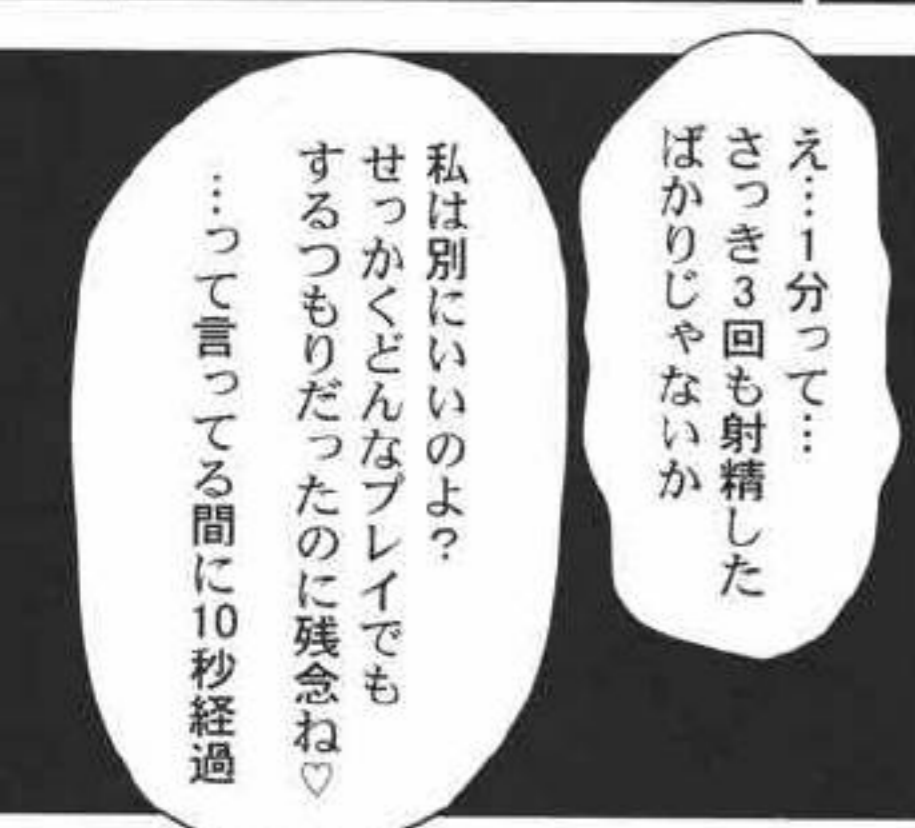 え…1分って…
さっき3回も射精した
ばかりじゃないか
私は別にいいのよ？
せっかくどんなプレイでも
するつもりだったのに残念ね♡
…って言ってる間に10秒経過